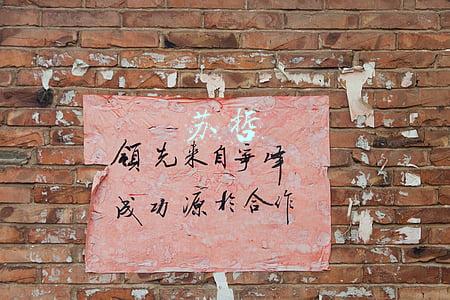 苏哲
领先来自争峰
成功源於合作